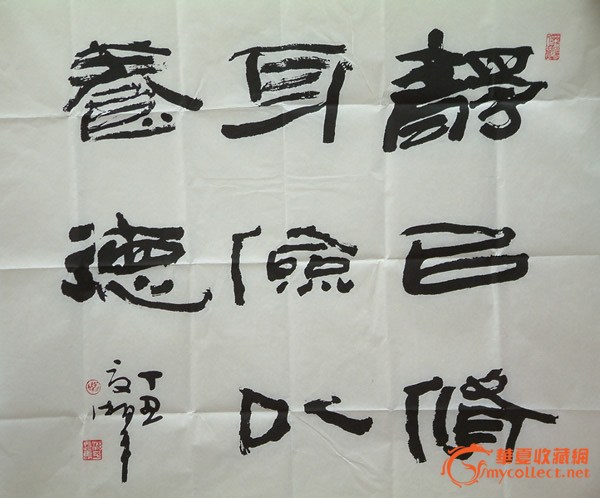 靜以修
身儉以
養德
丁丑
華夏收藏網
mycollect.net